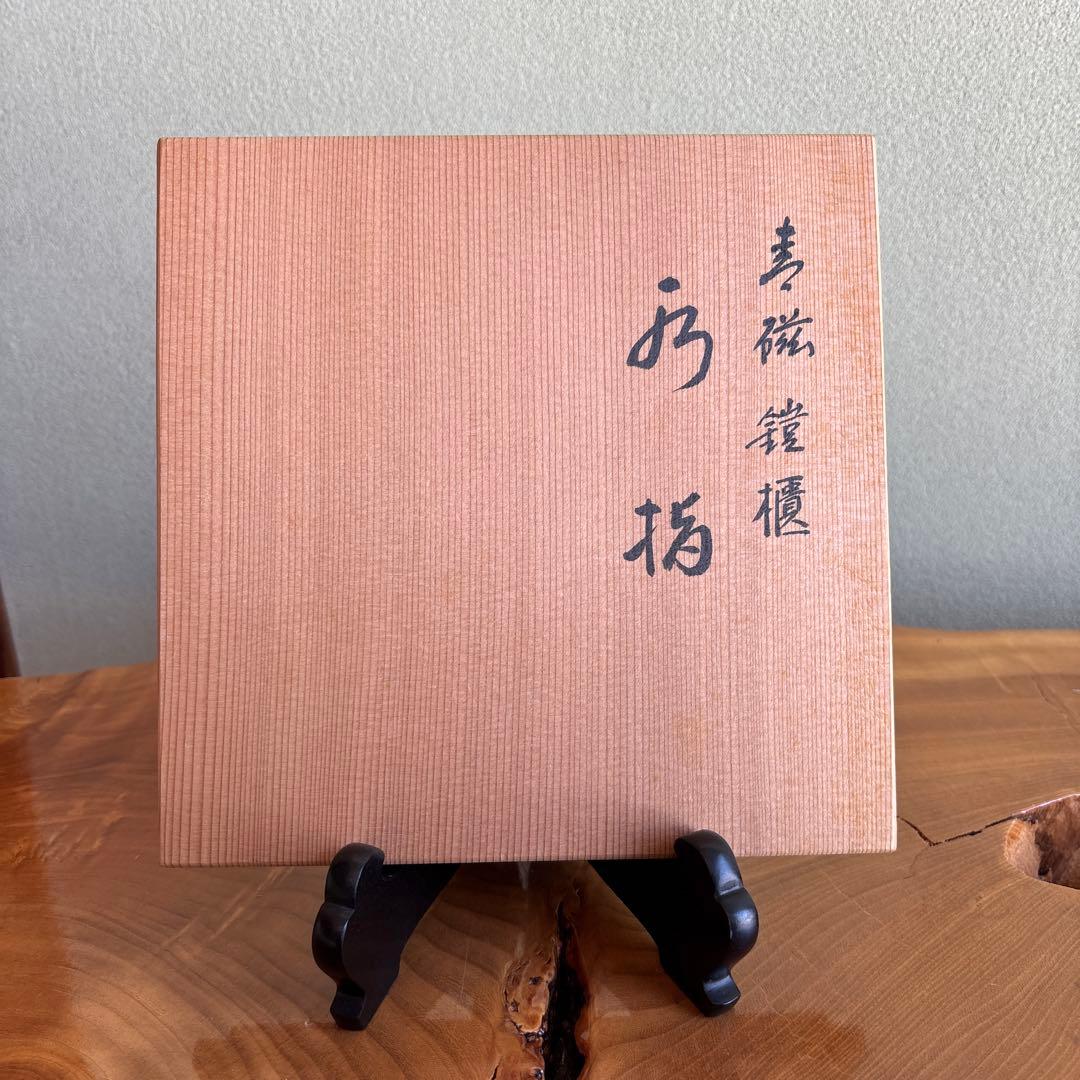 青磁 鎧櫃
水指